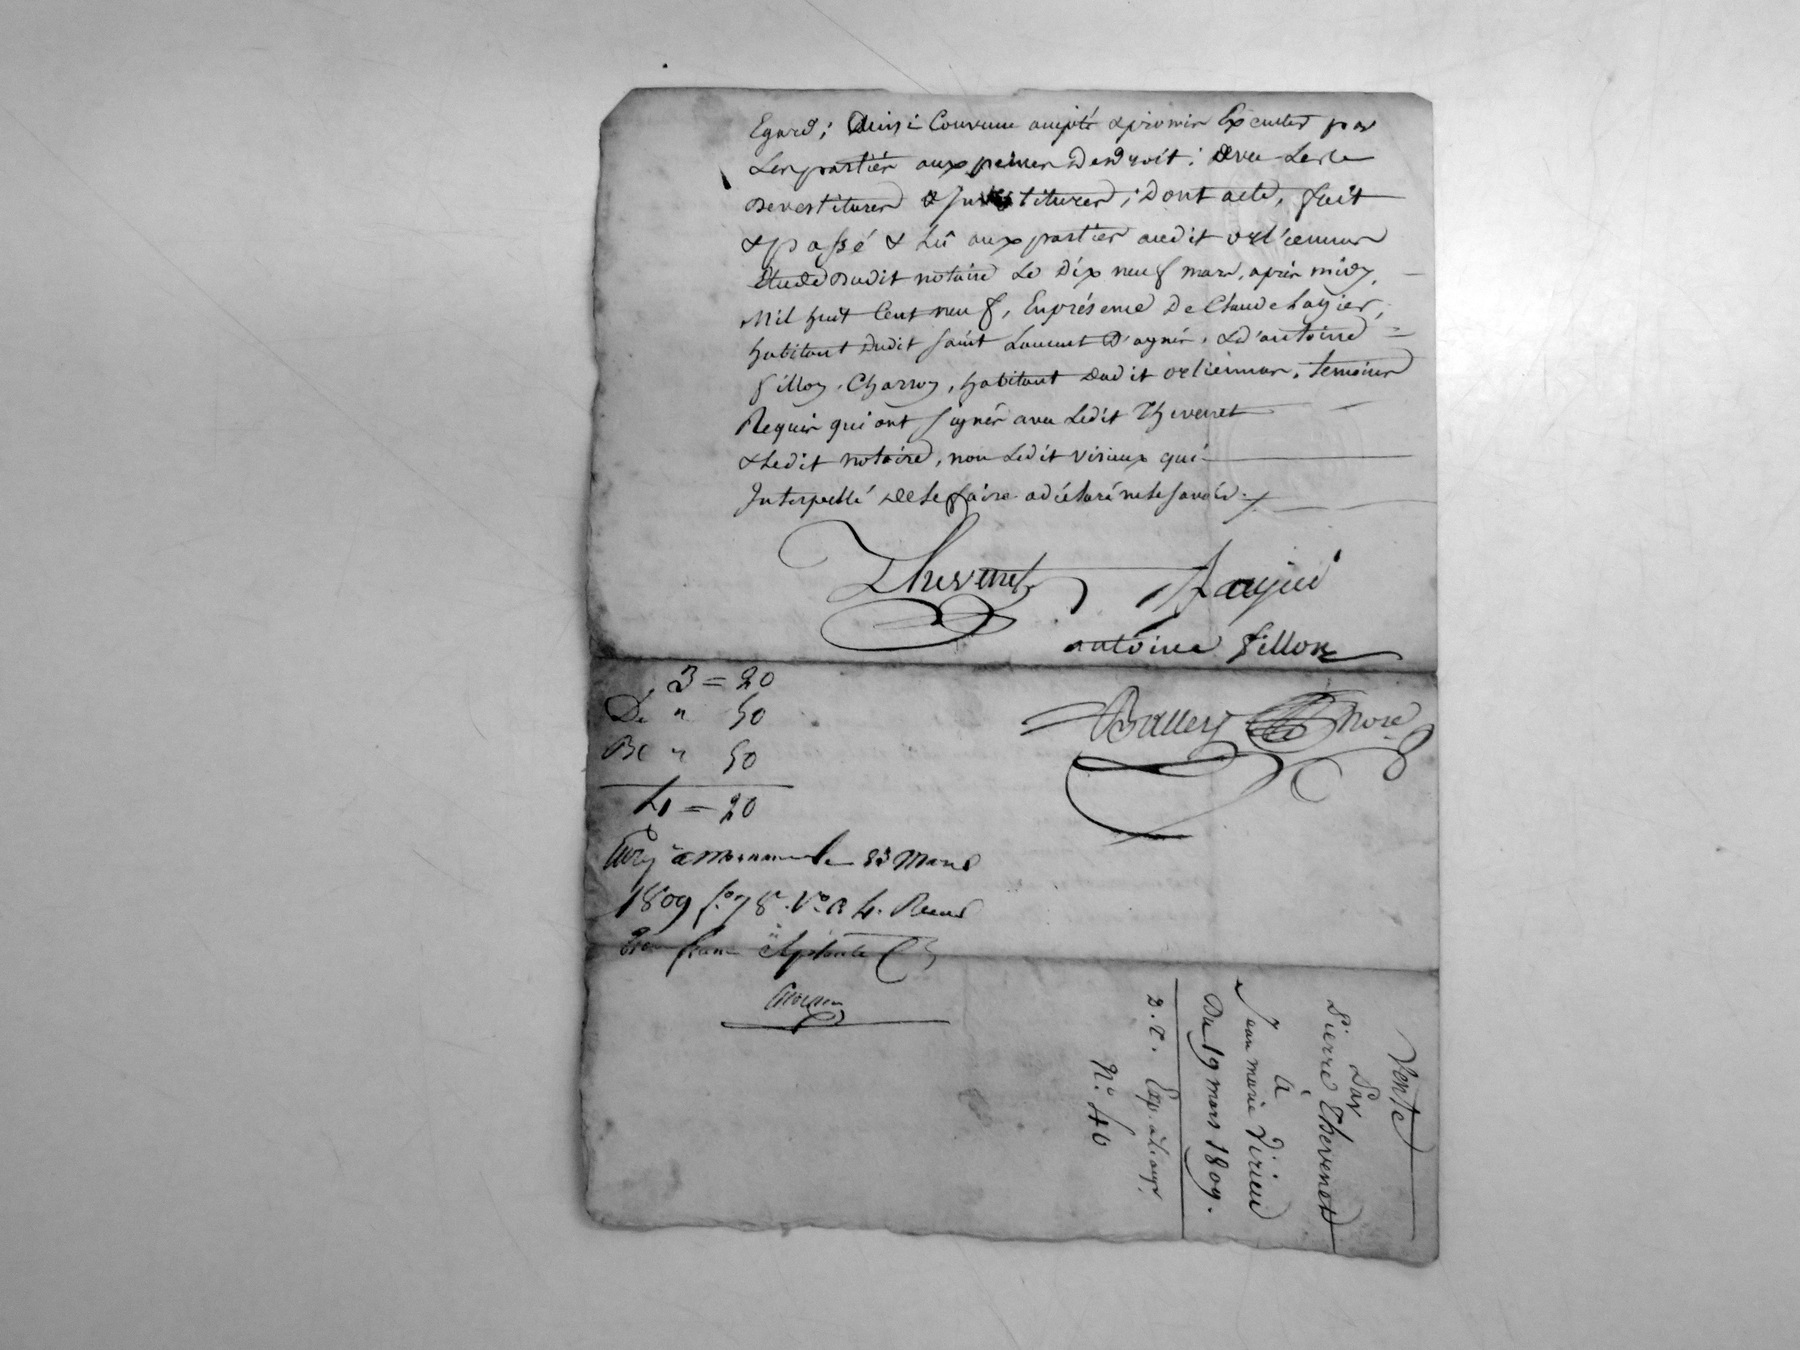 Egard; Ainsi Convenu accepté & promis Executer par
Les parties aux peines de droit; avec Les
devestitures & Investitures; dont acte, fait
& passé & Lû aux parties audit orlienas
Etude dudit notaire Le dix neuf mars, après midy,
Mil huit Cent neuf, En présence De Claude
habitant dudit saint Laurent D'agnis, & d'antoine
fillon Charroy, habitant dudit orlienas, temoins
Requis qui ont signés avec Ledit Thevenet
& Ledit notaire, non Ledit virieux qui
Interpellé de Le faire a déclaré ne Le savoir
Thevenet
antoine fillon
nore
3 = 20
De " 50
" 50
4 = 20
a mornant le 23 Mars
1809 fo 78 Vo 4.
trois francs
Vente
Par
Pierre Thevenet
à
Jean marie Virieu
Du 19 mars 1809.
2.c. Exp.
No. 46